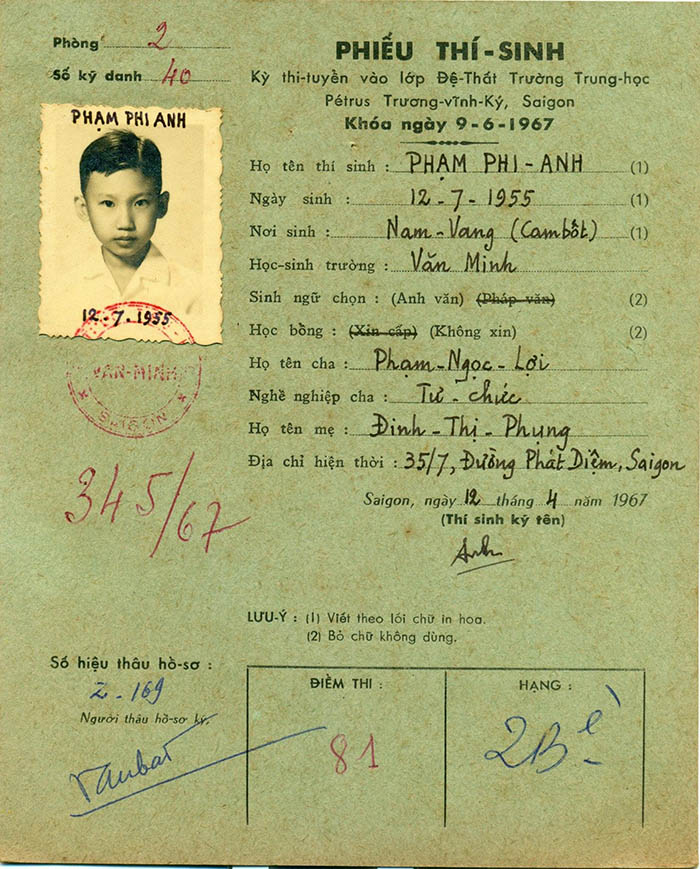 Phòng 2
Số ký danh 40
PHIẾU THÍ-SINH
Kỳ thi-tuyển vào lớp Đệ-Thất Trường Trung-học
Pétrus Trương-vĩnh-Ký, Saigon
Khóa ngày 9-6-1967
PHẠM PHI ANH
12-7-1955
VĂN-MINH
SAIGON
345/67
Họ tên thí sinh : PHẠM PHI-ANH (1)
Ngày sinh : 12-7-1955 (1)
Nơi sinh : Nam-Vang (Cambốt) (1)
Học-sinh trường : Văn Minh
Sinh ngữ chọn : (Anh văn) (Pháp văn) (2)
Học bổng : (Xin cấp) (Không xin) (2)
Họ tên cha : Phạm-Ngọc-Lợi
Nghề nghiệp cha : Tư-chức
Họ tên mẹ : Đinh-Thị-Phụng
Địa chỉ hiện thời : 35/7, Đường Phát Diệm, Saigon
Saigon, ngày 12 tháng 4 năm 1967
(Thí sinh ký tên)
Anh
LƯU-Ý : (1) Viết theo lối chữ in hoa.
(2) Bỏ chữ không dùng.
Số hiệu thâu hồ-sơ :
I-169
Người thâu hồ-sơ ký,
ĐIỂM THI :
81
HẠNG :